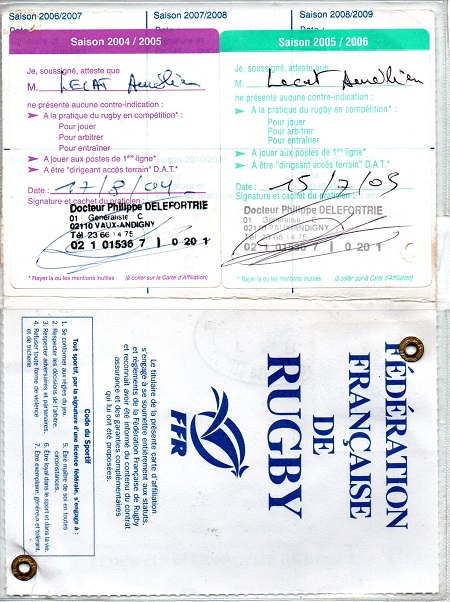 Saison 2006/2007
Saison 2007/2008
Saison 2008/2009
Saison 2004 / 2005
Je, soussigné, atteste que
M. LECAT Aurélien
ne présente aucune contre-indication :
➤ A la pratique du rugby en compétition* :
Pour jouer
Pour arbitrer
Pour entraîner
➤ A jouer aux postes de 1ère ligne*
➤ A être "dirigeant accès terrain" D.A.T.*
Date : 17/8/04
Signature et cachet du praticien :
Docteur Philippe DELEFORTRIE
01 Généraliste C
02110 VAUX-ANDIGNY
Tél 23 66 14 75
02 1 01536 7 | 0 20 1
* Rayer la ou les mentions inutiles
(à coller sur la Carte d'Affiliation)
Saison 2005 / 2006
Je, soussigné, atteste que
M. Lecat Aurélien
ne présente aucune contre-indication :
➤ A la pratique du rugby en compétition* :
Pour jouer
Pour arbitrer
Pour entraîner
➤ A jouer aux postes de 1ère ligne*
➤ A être "dirigeant accès terrain" D.A.T.*
Date : 15/7/05
Signature et cachet du praticien :
Docteur Philippe DELEFORTRIE
01 Généraliste C
02110 VAUX-ANDIGNY
Tél 23 66 14 75
02 1 01536 7 | 0 20 1
* Rayer la ou les mentions inutiles
(à coller sur la Carte d'Affiliation)
FÉDÉRATION
FRANÇAISE
DE
RUGBY
FFR
Le titulaire de la présente carte d'affiliation
s'engage à se soumettre entièrement aux statuts,
et règlements de la Fédération Française de Rugby
et reconnaît avoir été informé du contenu du contrat
assurance et des garanties complémentaires
qui lui ont été proposées.
Code du Sportif
Tout sportif, par la signature d'une licence fédérale, s'engage à :
1. Se conformer aux règles du jeu.
2. Respecter les décisions de l'arbitre.
3. Respecter adversaires et partenaires.
4. Refuser toute forme de violence
et de tricherie
5. Être maître de soi en toutes
circonstances.
6. Être loyal dans le sport et dans la vie.
7. Être exemplaire, généreux et tolérant.